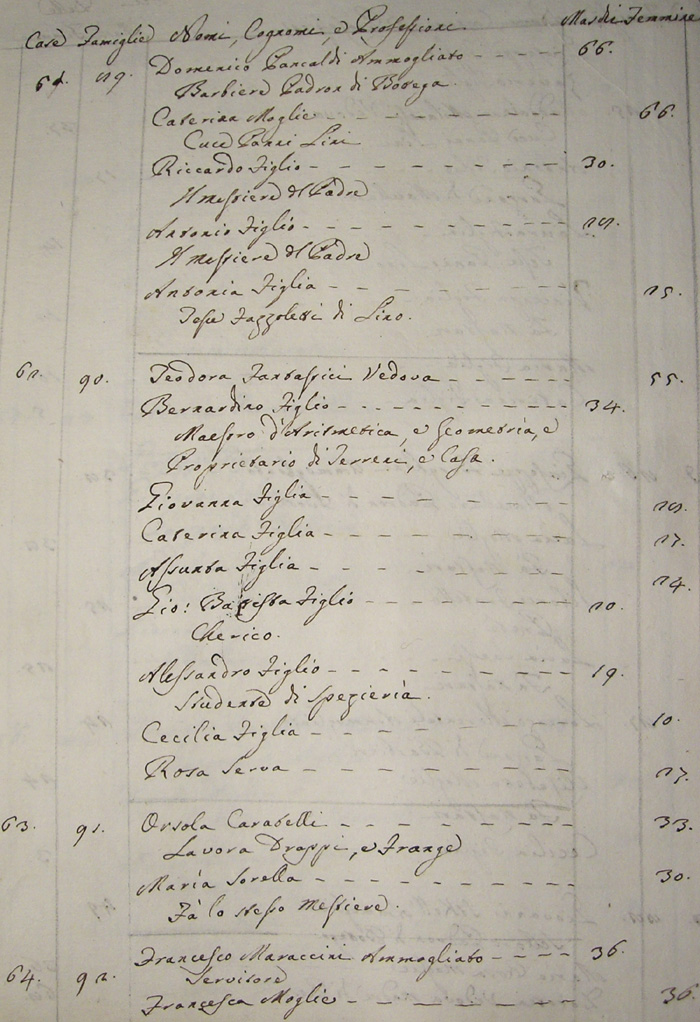 Case Famiglie Nomi, Cognomi, e Professioni. Maschi Femmine
61. Domenico Pancaldi Ammogliato 66.
Barbiere Padron di Botega.
Caterina Moglie 66.
Cuce Panni Lini
Riccardo Figlio 30.
Il mestiere del Padre
Antonio Figlio
Il mestiere del Padre
Antonia Figlia 25.
Tese Fazzoletti di Lino.
62. 90. Teodora Fantastici Vedova 55.
Bernardino Figlio 34.
Maestro d'Aritmetica, e Geometria, e
Proprietario di Terreni, e Casa.
Giovanna Figlia
Caterina Figlia 27.
Assunta Figlia 24.
Gio: Batista Figlio 20.
Cherico.
Alessandro Figlio 19.
Studente di Spezieria.
Cecilia Figlia 10.
Rosa Serva 27.
63. 91. Orsola Carabelli 33.
Lavora Drappi, e Frange
Maria Sorella 30.
Fà lo stesso Mestiere.
64. 92. Francesco Maraccini Ammogliato 36.
Servitore
Francesca Moglie 36.